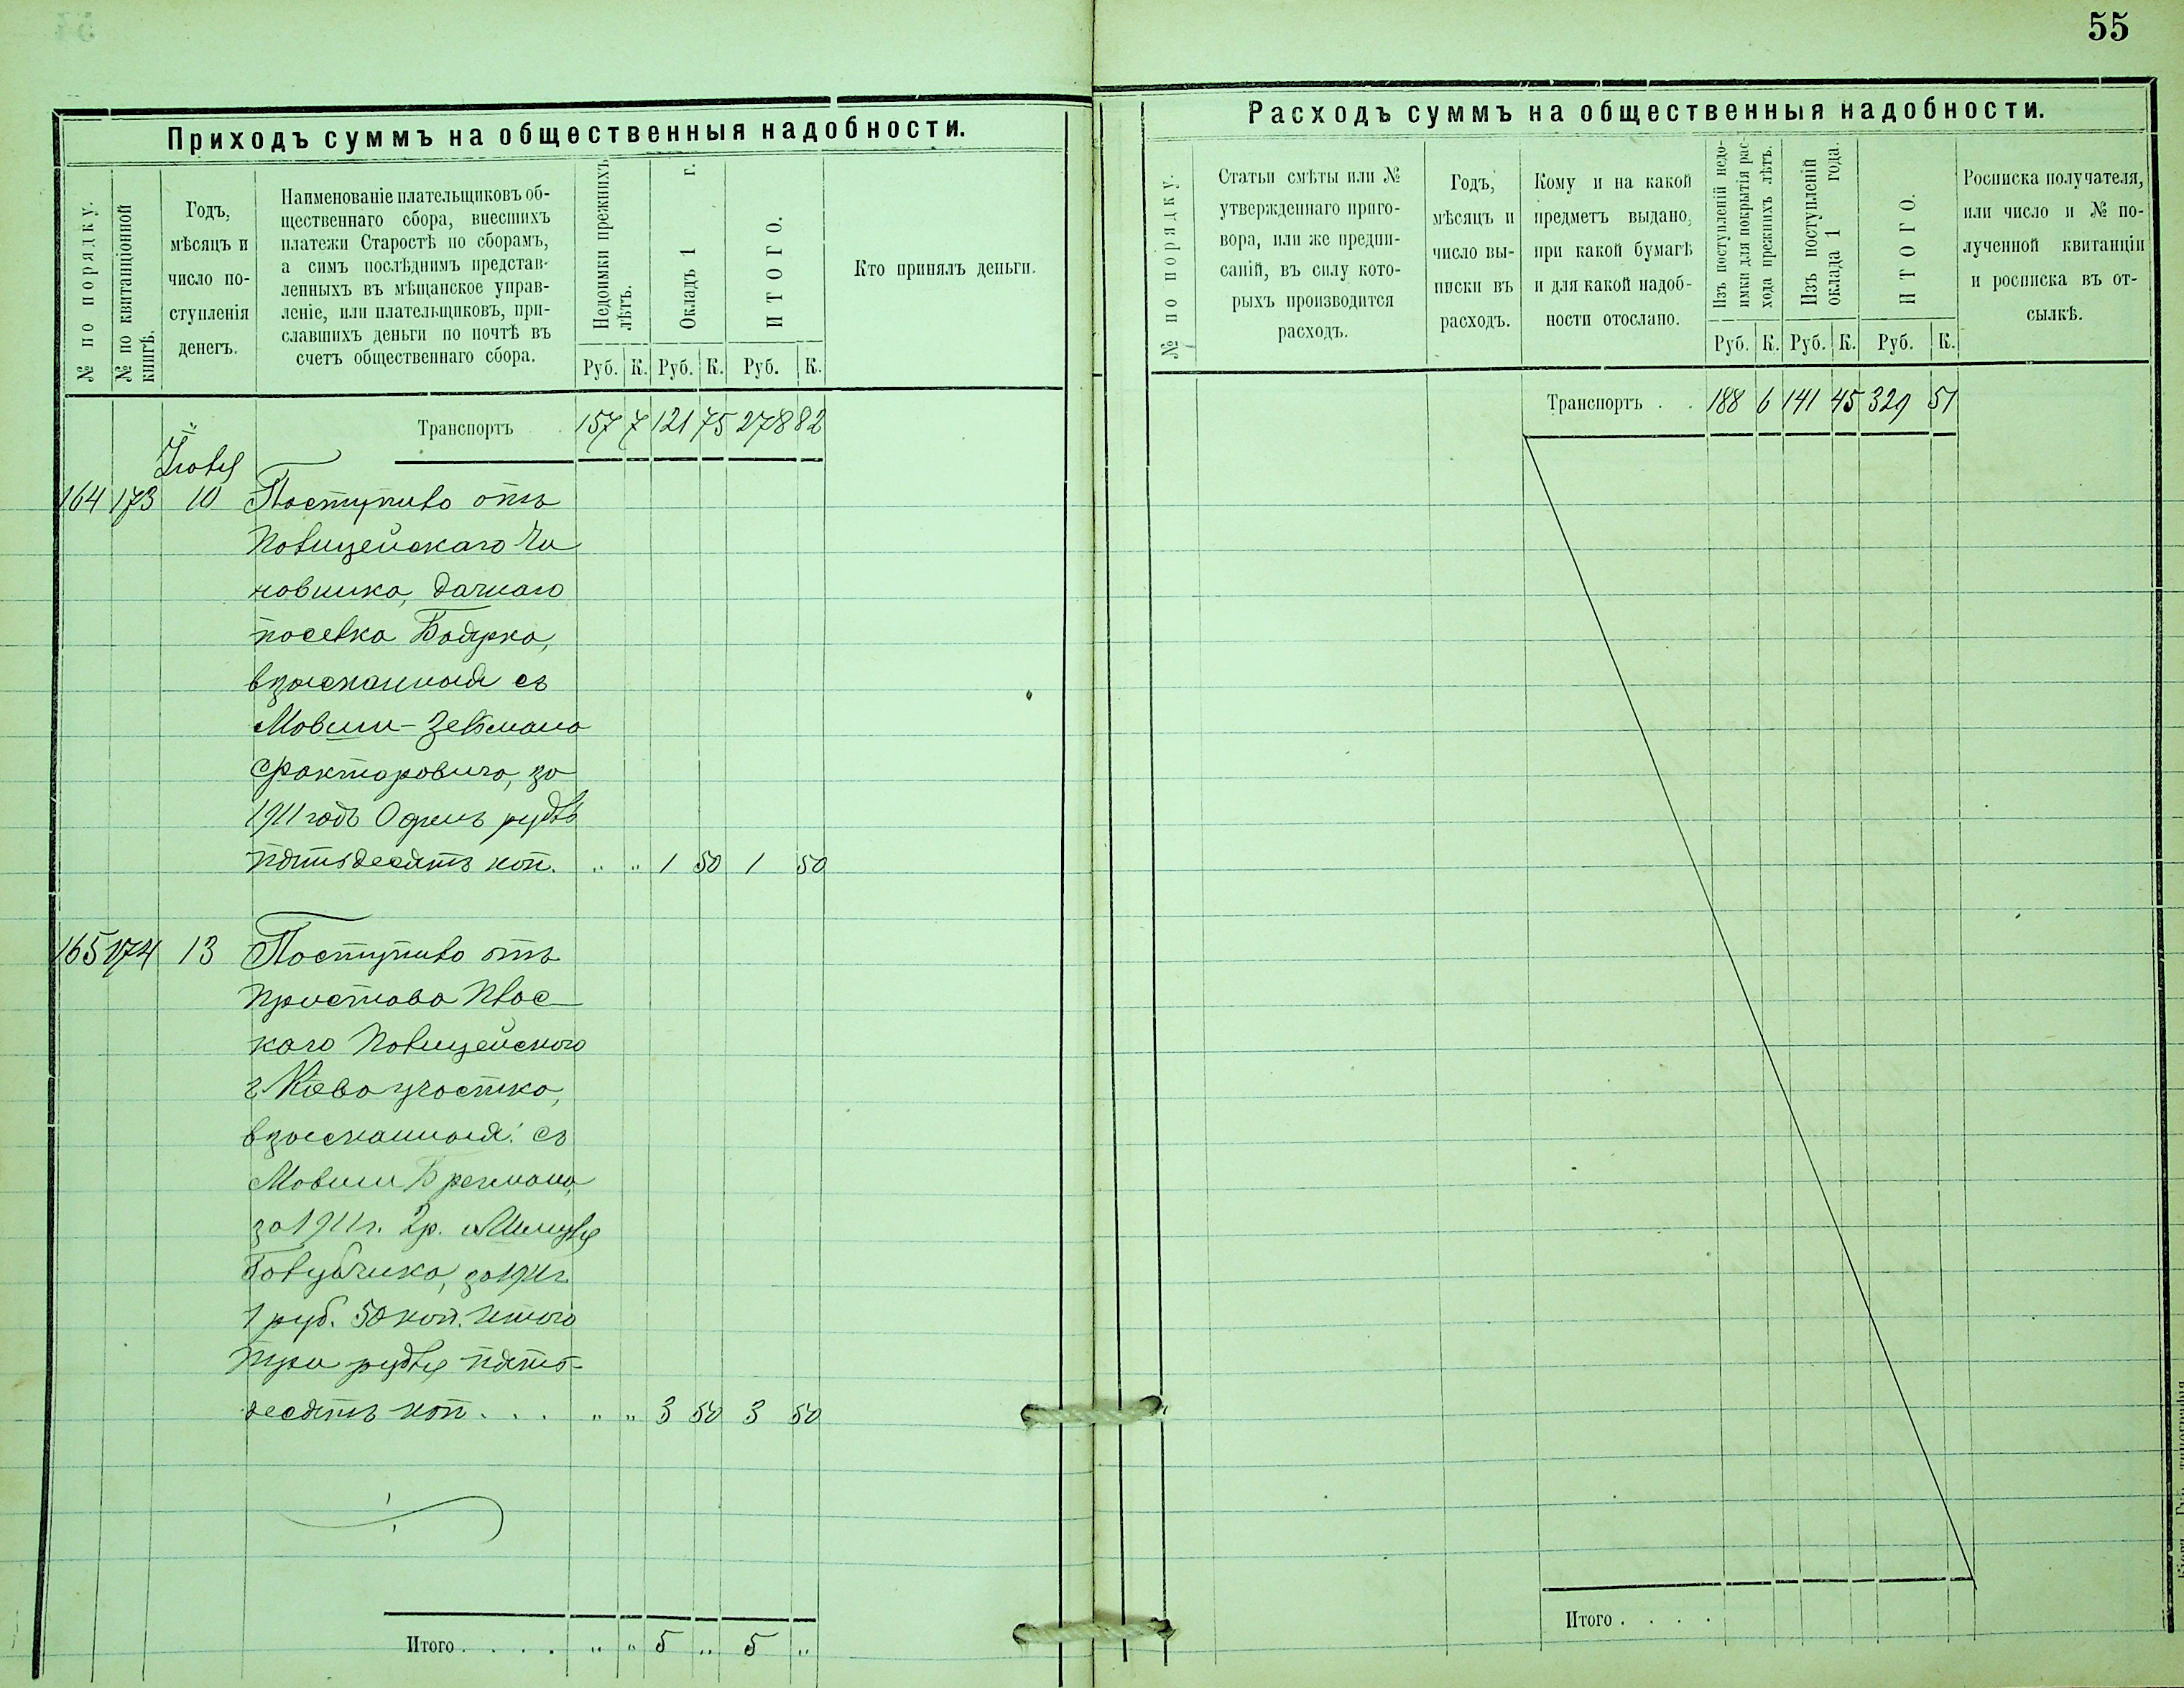 55
Приходъ суммъ на общественныя надобности.
№ по порядку.
№ по квитанціонной книгѣ.
Годъ, мѣсяцъ и число поступленія денегъ.
Наименованіе плательщиковъ об-
щественнаго сбора, внесшихъ
платежи Старостѣ по сборамъ,
а симъ послѣднимъ представ-
ленныхъ въ мѣщанское управ-
леніе, или плательщиковъ, при-
славшихъ деньги по почтѣ въ
счетъ общественнаго сбора.
Недоимки прежнихъ лѣтъ.
Окладъ 1 г.
ИТОГО.
Руб. К. Руб. К. Руб. К.
Кто принялъ деньги.
Транспортъ 157 7 121 75 278 82
164 173 10 Поступило отъ
Полицейскаго Чи
новника, дачнаго
поселка Боярка,
взысканныя съ
Мовши-Зельмана
Факторовича, за
1911 годъ Одинъ рубль
пятьдесятъ коп. " " 1 50 1 50
165 174 13 Поступило отъ
Пристава Плос-
каго Полицейскаго
г Кіева участка,
взысканныя: съ
Мовши Брегмана,
за 1911 г. 2 р. и
Голубчика, за 1911 г.
1 руб. 50 коп. итого
три рубля пять-
десятъ коп... " " 3 50 3 50
Итого.... " " 5 " 5 "
Расходъ суммъ на общественныя надобности.
№ по порядку.
Статьи смѣты или №
утвержденнаго приго-
вора, или же предпи-
саній, въ силу кото-
рыхъ производится
расходъ.
Годъ,
мѣсяцъ и
число вы-
писки въ
расходъ.
Кому и на какой
предметъ выдано,
при какой бумагѣ
и для какой надоб-
ности отослано.
Изъ поступленій недо-
имки для покрытія рас-
хода прежнихъ лѣтъ.
Изъ поступленій
оклада 1 года.
ИТОГО.
Руб. К. Руб. К. Руб. К.
Росписка получателя,
или число и № по-
лученной квитанціи
и росписка въ от-
сылкѣ.
Транспортъ . . 188 6 141 45 329 51
Итого . . . .